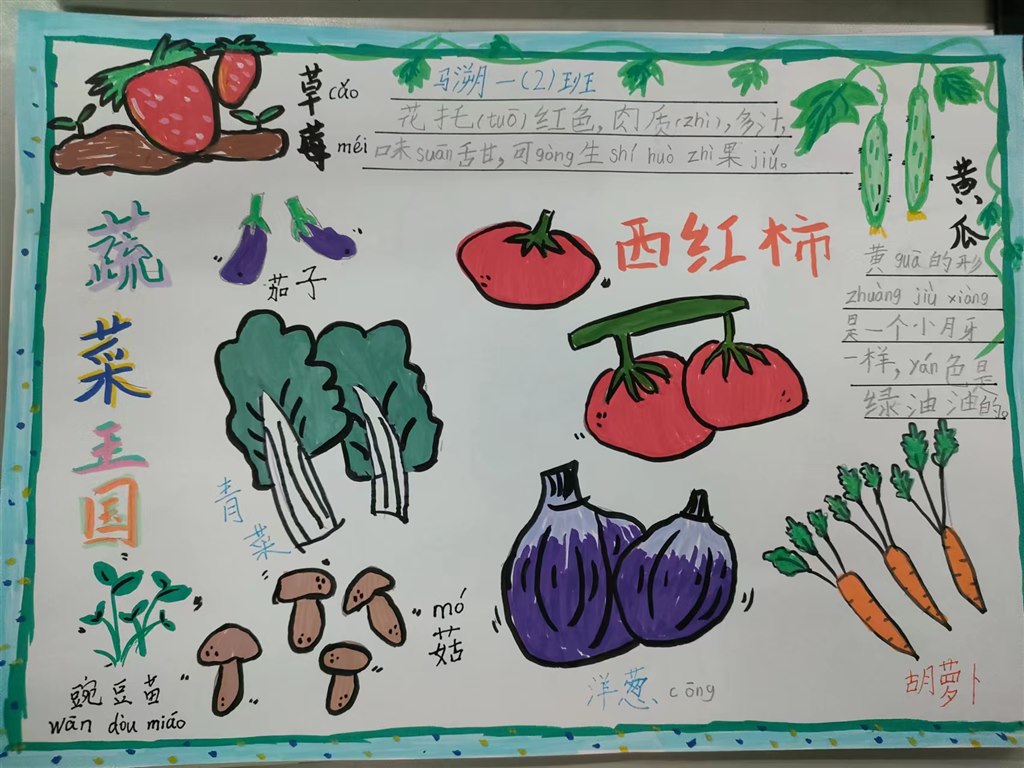 草cǎo
莓méi
马溯一(2)班
花托(tuō)红色,肉质(zhì),多汁,
口味suān舌甘,可gòng生shí huò zhì果jiǔ。
蔬菜王国
茄子
西红柿
黄瓜
黄guā的形
zhuàng jiù xiàng
是一个小月牙
一样,yán色是
绿油油的。
青菜
mó
菇
豌豆苗
wān dòu miáo
洋葱cōng
胡萝卜